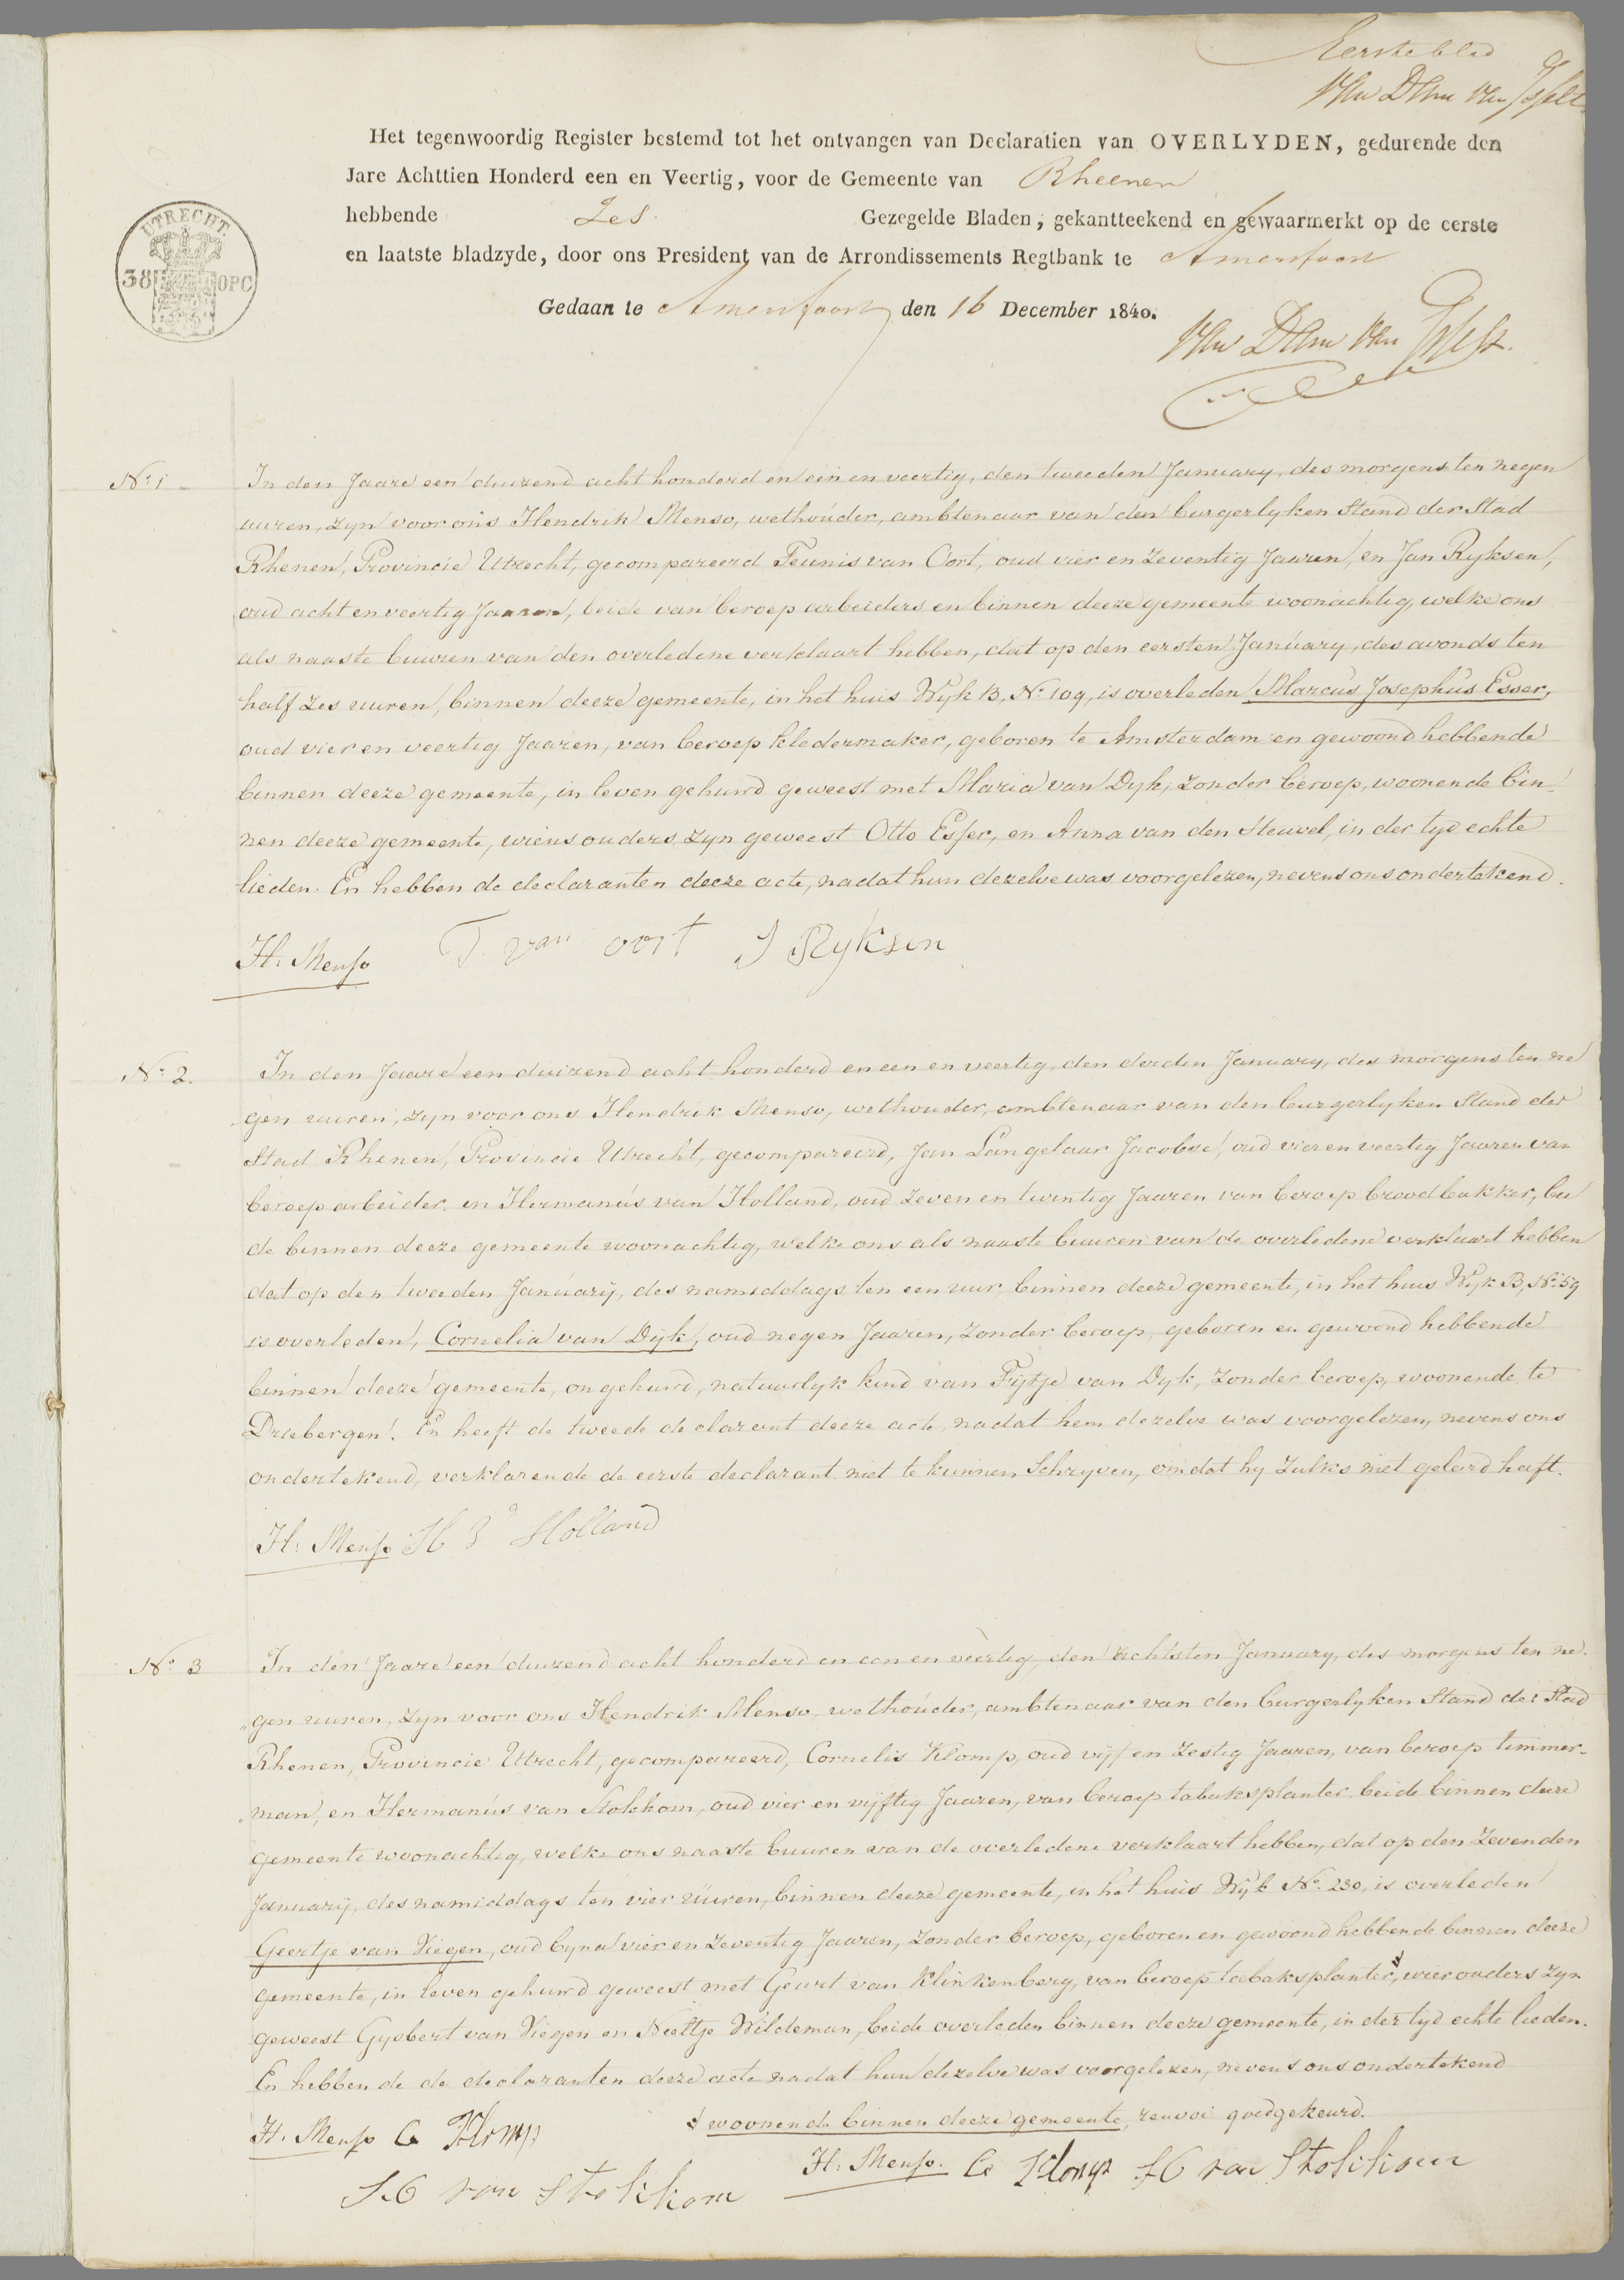 Eerste blad
Van Dam van Isselt
Het tegenwoordig Register bestemd tot het ontvangen van Declaratien van OVERLYDEN, gedurende den
Jare Achttien Honderd een en Veertig, voor de Gemeente van Rheenen
hebbende Zes Gezegelde Bladen, gekantteekend en gewaarmerkt op de eerste
en laatste bladzyde, door ons President van de Arrondissements Regtbank te Amersfoort
Gedaan te Amersfoort den 16 December 1840.
UTRECHT.
38 OPC
Van Dam van Isselt.
No. 1 In den Jaare een duizend acht honderd en een en veertig, den tweeden January, des morgens ten negen
uuren, zyn voor ons Hendrik Menso, wethouder, ambtenaar van den burgerlyken Stand der Stad
Rhenen, Provincie Utrecht, gecompareerd Teunis van Oort, oud vier en zeventig Jaaren, en Jan Ryksen,
oud acht en veertig Jaaren, beide van beroep arbeiders en binnen deeze gemeente woonachtig, welke ons
als naaste buuren van den overledene verklaart hebben, dat op den eersten January, des avonds ten
half zes uuren, binnen deeze gemeente, in het huis Wyk B, No. 109, is overleden Marcus Josephus Esser,
oud vier en veertig Jaaren, van beroep kledermaker, geboren te Amsterdam en gewoond hebbende
binnen deeze gemeente, in leven gehuwd geweest met Maria van Dyk, zonder beroep, woonende bin-
nen deeze gemeente, wiens ouders zyn geweest Otto Esser, en Anna van den Heuvel, in der tyd echte
lieden. En hebben de declaranten deeze acte, nadat hun dezelve was voorgelezen, nevens ons ondertekend.
H: Menso T. van oort J Ryksen
No. 2. In den Jaare een duizend acht honderd en een en veertig, den derden January, des morgens ten ne
"gen uuren, zyn voor ons Hendrik Menso, wethouder, ambtenaar van den burgerlyken Stand der
Stad Rhenen, Provincie Utrecht, gecompareerd, Jan Langelaar Jacobse, oud vier en veertig Jaaren van
beroep arbeider, en Hermanus van Holland, oud zeven en twintig Jaaren van beroep broodbakker, bei
de binnen deeze gemeente woonachtig, welke ons als naaste buuren van de overledene verklaart hebben
dat op den tweeden January, des namiddags ten een uur, binnen deeze gemeente, in het huis Wyk B, No. 59
is overleden, Cornelia van Dijk, oud negen Jaaren, zonder beroep, geboren en gewoond hebbende
binnen deeze gemeente, ongehuwd, natuurlyk kind van Fijtje van Dyk, zonder beroep, woonende te
Driebergen. En heeft de tweede declarant deeze acte, nadat hem dezelve was voorgelezen, nevens ons
ondertekend, verklarende de eerste declarant niet te kunnen Schryven, omdat hy zulks niet geleerd heeft.
H: Menso H Vn Holland
No. 3 In den Jaare een duizend acht honderd en een en veertig, den achtsten January, des morgens ten ne
"gen uuren, zyn voor ons Hendrik Menso, wethouder, ambtenaar van den burgerlyken Stand der Stad
Rhenen, Provincie Utrecht, gecompareerd, Cornelis Klomp, oud vyf en zestig Jaaren, van beroep timmer-
"man, en Hermanus van Stokkom, oud vier en vijftig Jaaren, van beroep tabaksplanter, beide binnen deeze
gemeente woonachtig, welke ons naaste buuren van de overledene verklaart hebben, dat op den zevenden
January, des namiddags ten vier uuren, binnen deeze gemeente, in het huis Wyk No. 230, is overleden
Geertje van Viegen, oud byna vier en zeventig Jaaren, zonder beroep, geboren en gewoond hebbende binnen deeze
gemeente, in leven gehuwd geweest met Geurt van Klinkenberg, van beroep tabaksplanter, wier ouders zyn
geweest Gysbert van Viegen en Neeltje Wildeman, beide overleden binnen deeze gemeente, in der tyd echte lieden.
En hebben de de declaranten deeze acte nadat hun dezelve was voorgelezen, nevens ons ondertekend
woonende binnen deeze gemeente, renvoi goedgekeurd.
H. Menso C Klomp
H: Menso. C Klomp H van Stokkom
H van Stokkom